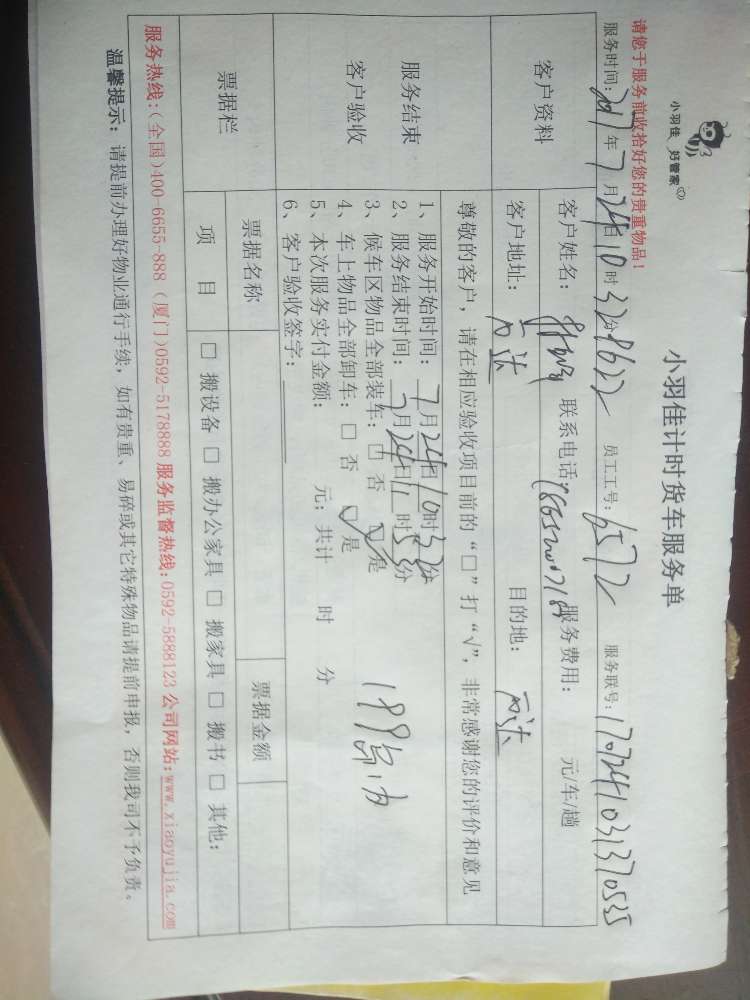 小羽佳 好管家
小羽佳计时货车服务单
请您于服务前收拾好您的贵重物品!
服务时间: 2017年7月24日10时32分 8622 员工工号: 6572 服务联号: 1707241031370535
客户资料
客户姓名: 联系电话: 服务费用: 元/车/趟
客户地址: 目的地:
服务结束
客户验收
尊敬的客户，请在相应验收项目前的“□”打“√”，非常感谢您的评价和意见
1、服务开始时间: 7月24日10时32分
2、服务结束时间: 7月24日11时33分
3、候车区物品全部装车: □ 否 ☑ 是
4、车上物品全部卸车: □ 否 ☑ 是
5、本次服务实付金额: 元; 共计 时 分
6、客户验收签字:
199
票据栏
票据名称 票据金额
项 目 □ 搬设备 □ 搬办公家具 □ 搬家具 □ 搬书 □ 其他:
服务热线:(全国)400-6655-888 (厦门)0592-5178888 服务监督热线:0592-5888123 公司网站:www.xiaoyujia.com
温馨提示: 请提前办理好物业通行手续，如有贵重、易碎或其它特殊物品请提前申报，否则我司不予负责。